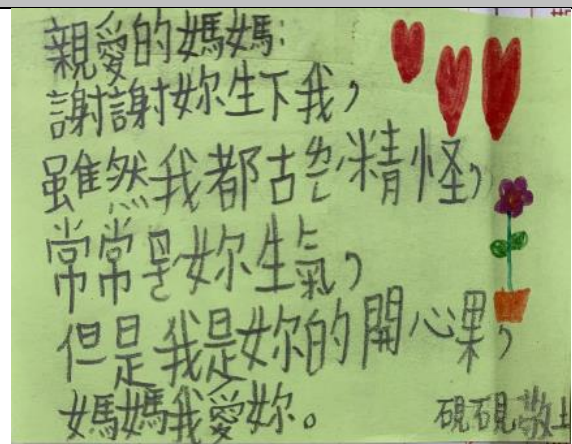 親愛的媽媽:
謝謝妳生下我,
雖然我都古精怪,
常常妳生氣,
但是我是妳的開心果,
媽媽我愛妳。
硯硯敬上